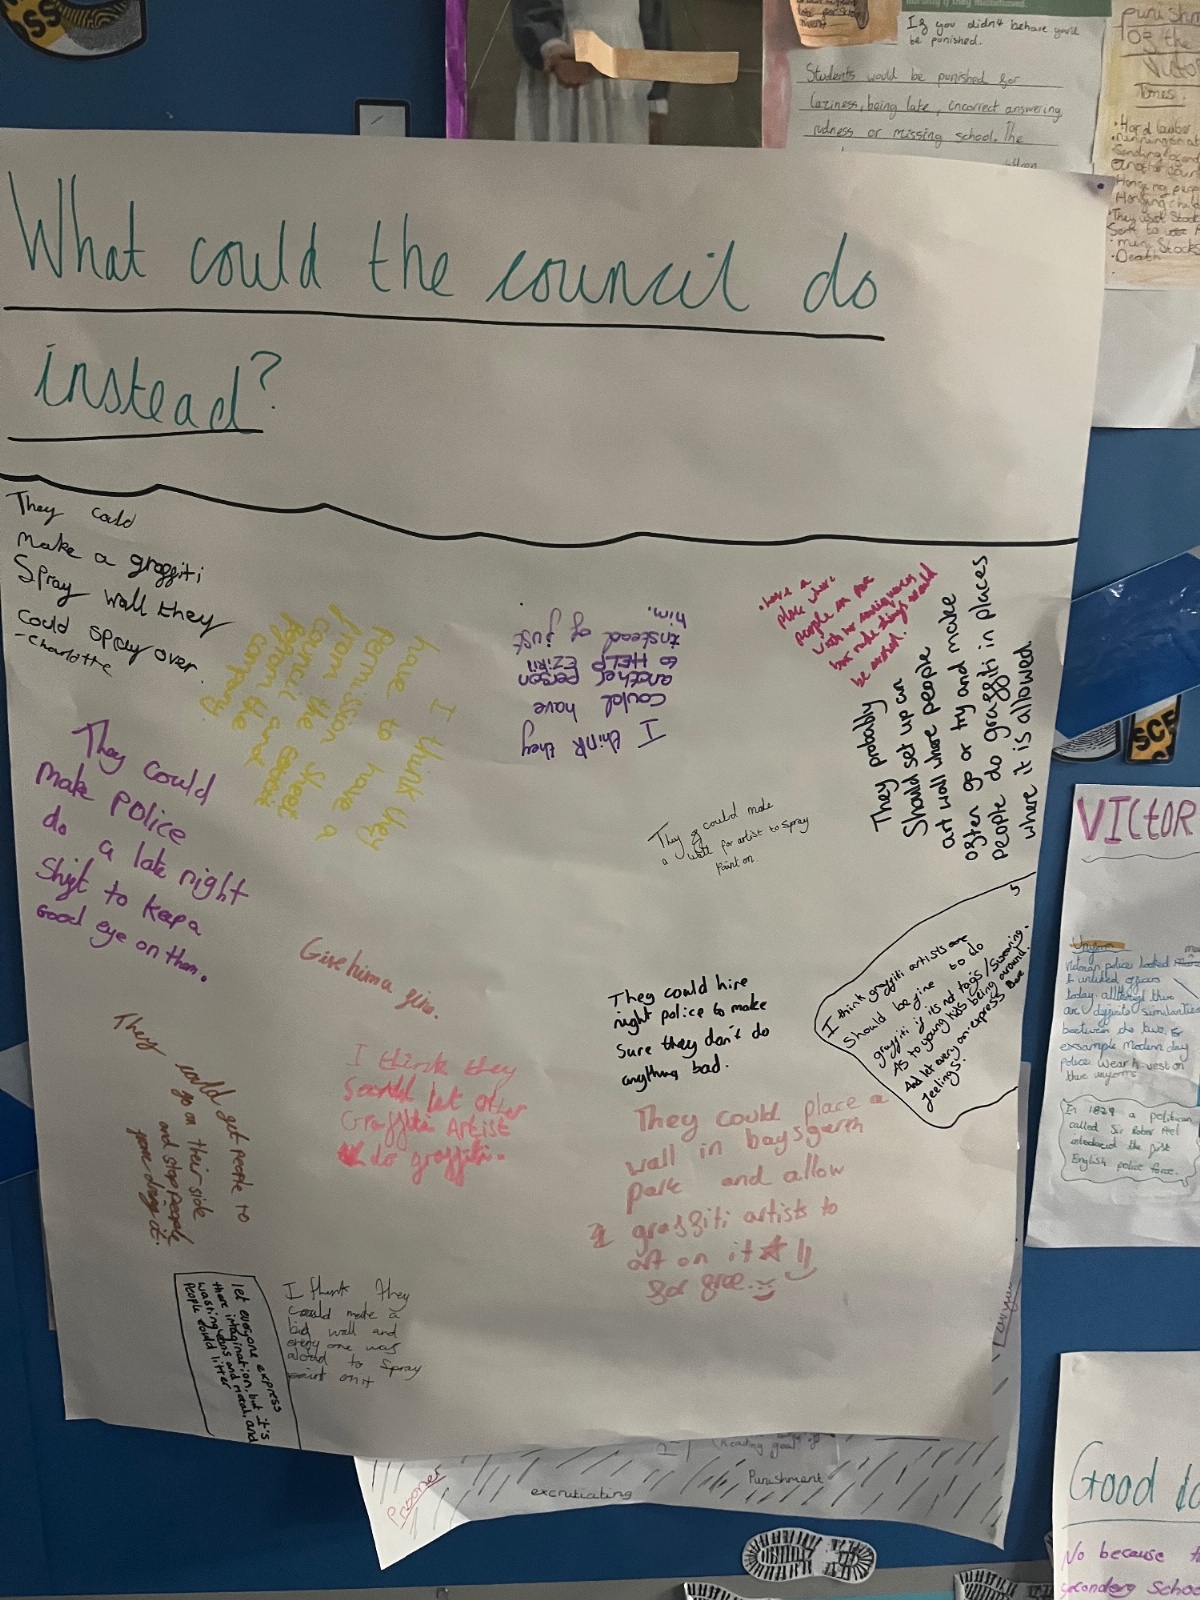 If you didn't behave you'd
be punished.
Students would be punished for
laziness, being late, incorrect answering
rudness or missing school. The
punish
for the
Victor
Times.
• Hard labour
Hanging
Death
What could the council do
instead?
They could
make a graffiti
Spray wall they
could spray over.
- Charlotte
I think they
have to have a
permission sheet
from the
council and
from the
company
I think they
could have
another person
to HELP EZirii
instead of just
him.
• have a
place where
people
be
They probably
Should set up an
art wall where people
often go or try and make
people do graffiti in places
where it is allowed.
They could
make police
do a late night
Shift to keep a
Good eye on them.
They could make
a wall for artist to spray
Paint on.
I think graffiti artists are
Should be fine to do
graffiti if its not tags/Swearing.
As to young kids being around.
And let every on express
feelings.
Give him a
They could hire
night police to make
Sure they don't do
anything bad.
They could get people to
go on their side
and stop people
from doing it.
I think they
let other
Graffiti Artist
do graffiti.
They could place a
wall in baysgarth
park and allow
graffiti artists to
art on it
for free.
let everyone express
there imagination, but it's
wasting cans and metal, and
People could litter
I think they
could make a
big wall and
every one was
aloud to spray
paint on it
VICTOR
Uniform
Victorian police looked
today although there
are definite similarities
between the two. For
exsample Modern day
Police wear a vest on
their uniforms
In 1829 a politician
called Sir Rober Peel
introduced the first
English police force.
SCE
Prisoner
excrutiating
Punishment
Good
No because
secondary School